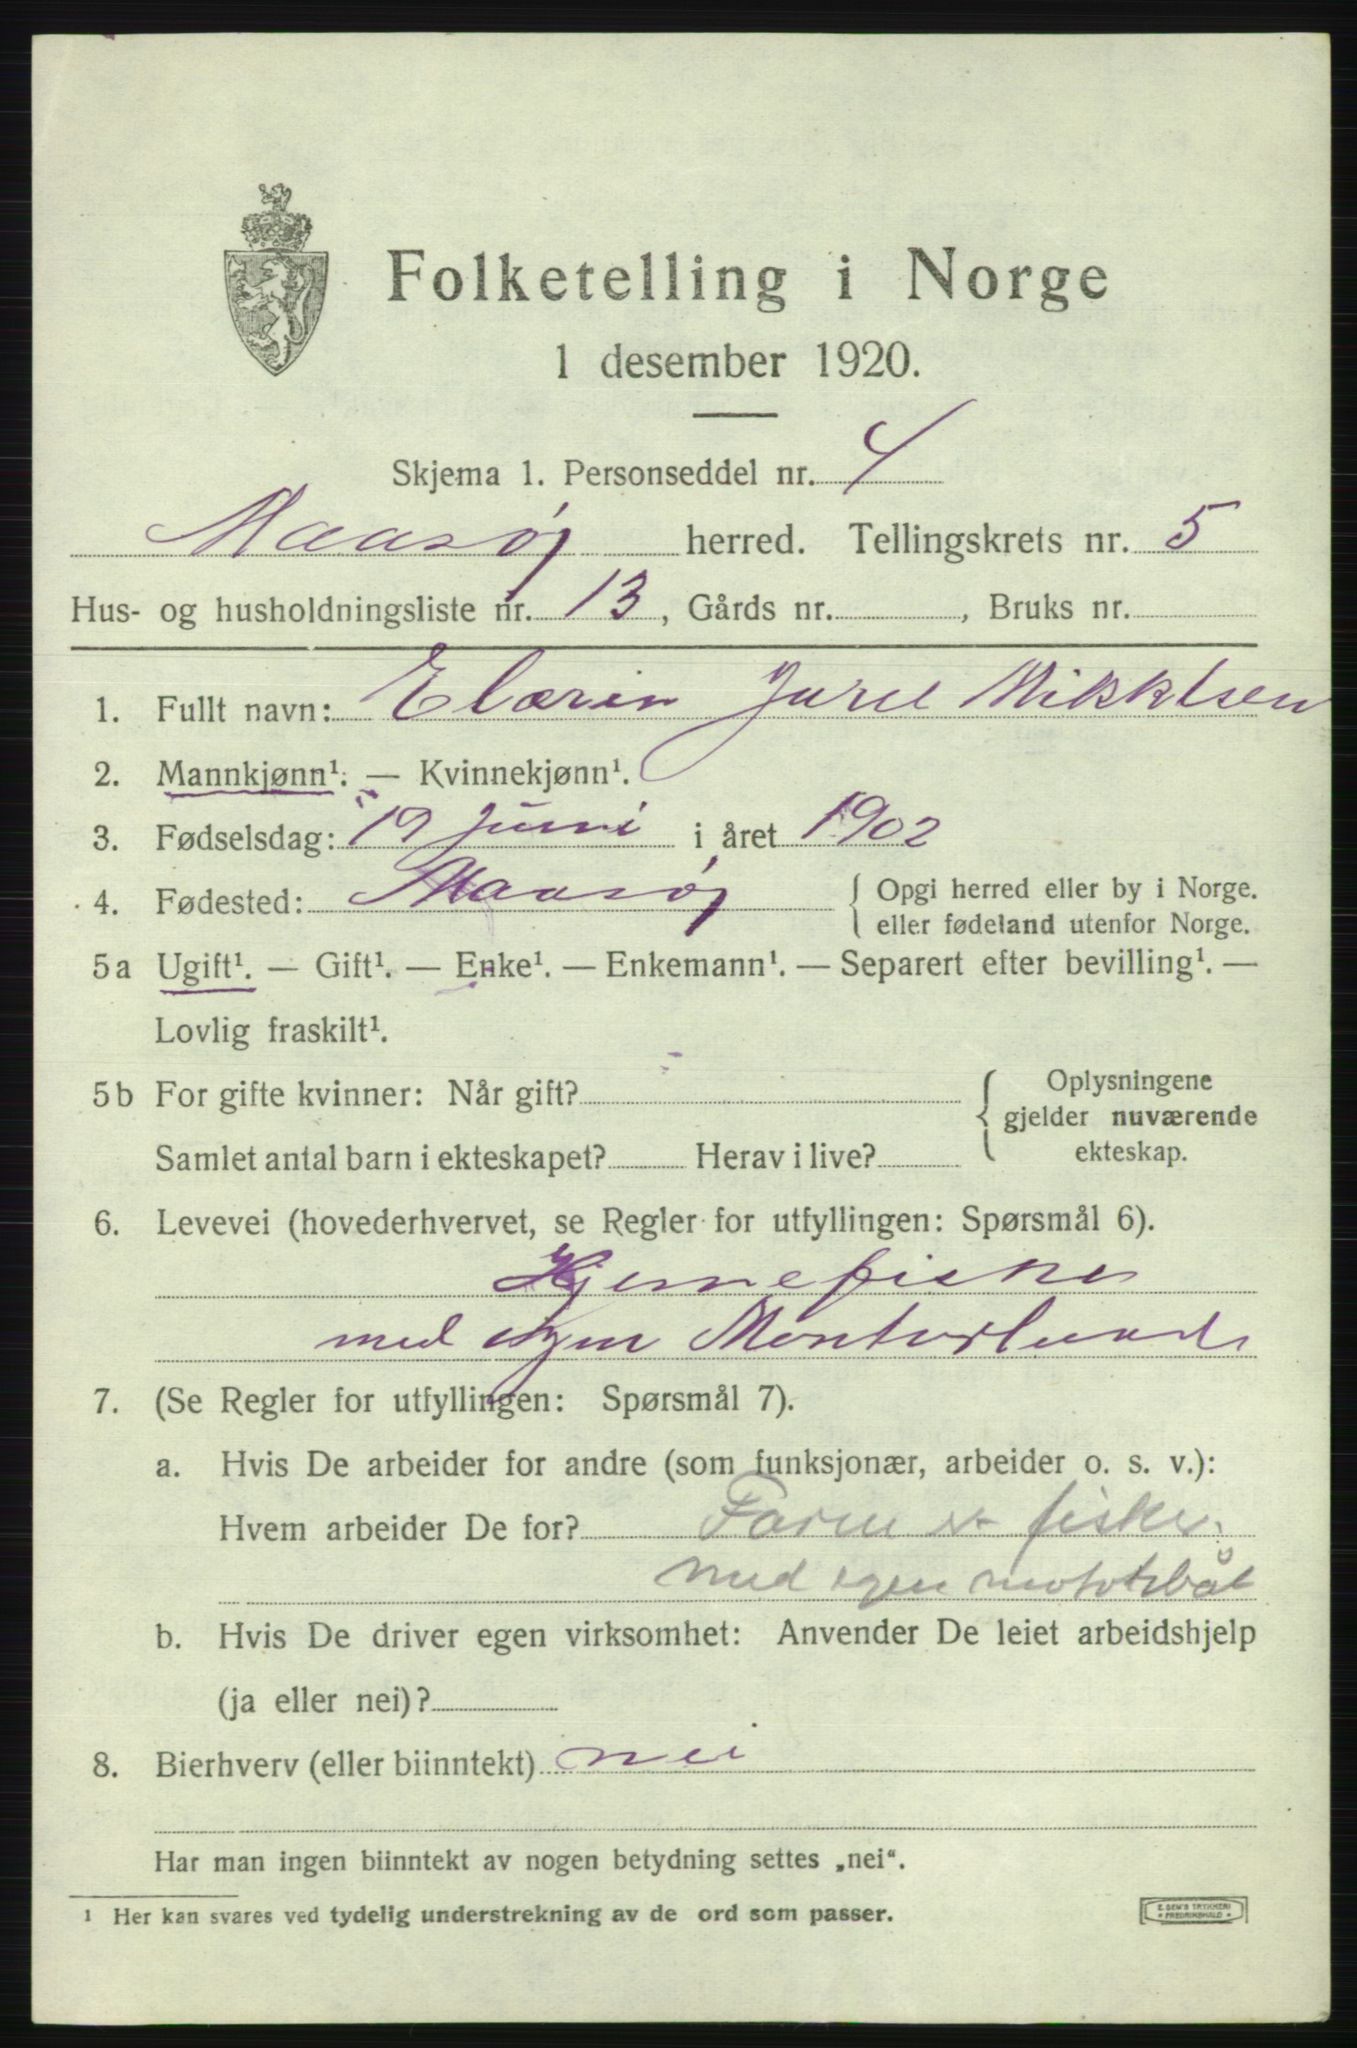 Folketelling i Norge
1 desember 1920.
Skjema 1. Personseddel nr. 4
Maasøy herred. Tellingskrets nr. 5
Hus- og husholdningsliste nr. 13, Gårds nr. , Bruks nr.
1. Fullt navn: Elarin Jurel Mikkelsen
2. Mannkjønn¹. — Kvinnekjønn¹.
3. Fødselsdag: 19 juni i året 1902
4. Fødested: Maasøy { Opgi herred eller by i Norge.
eller fødeland utenfor Norge.
5a Ugift¹. — Gift¹. — Enke¹. — Enkemann¹. — Separert efter bevilling¹. —
Lovlig fraskilt¹.
5b For gifte kvinner: Når gift? { Oplysningene
gjelder nuværende
Samlet antal barn i ekteskapet? Herav i live? ekteskap.
6. Levevei (hovederhvervet, se Regler for utfyllingen: Spørsmål 6).
Hjemmefisker
med egen
7. (Se Regler for utfyllingen: Spørsmål 7).
a. Hvis De arbeider for andre (som funksjonær, arbeider o. s. v.):
Hvem arbeider De for? Faren er fisker
med egen motorbåt
b. Hvis De driver egen virksomhet: Anvender De leiet arbeidshjelp
(ja eller nei)?
8. Bierhverv (eller biinntekt) nei
Har man ingen biinntekt av nogen betydning settes „nei“.
¹ Her kan svares ved tydelig understrekning av de ord som passer.
E. SEM'S TRYKKERI
• FREDRIKSHALD •